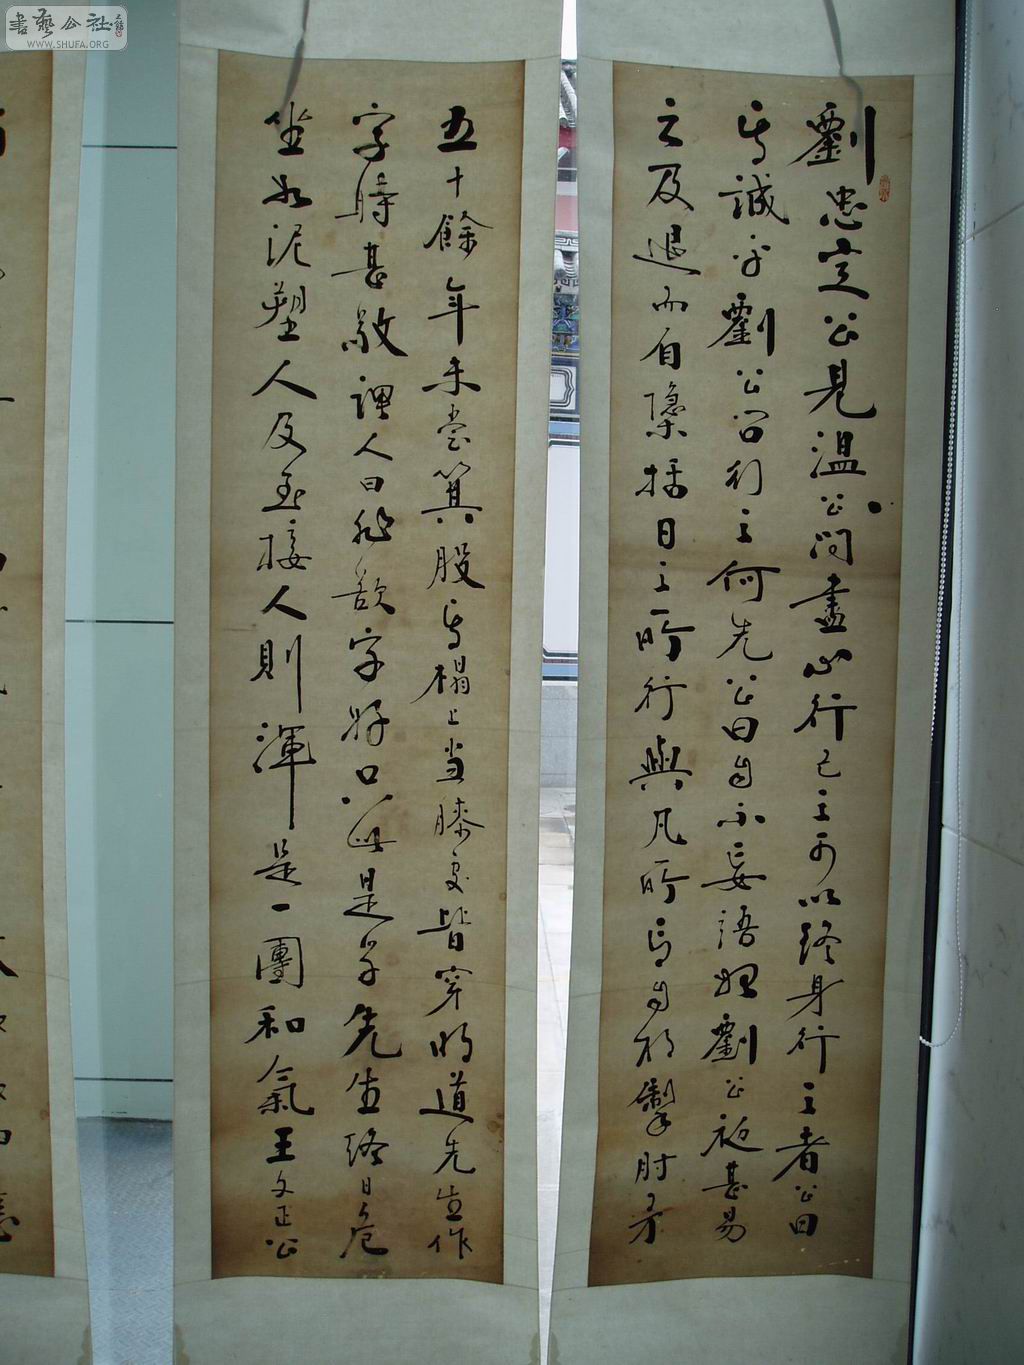 劉忠定公見温公問盡心行己之可以終身行之者公曰
其誠乎劉公問行之何先公曰自不妄語始劉公初甚易
之及退而自檃括日之所行與凡所言自相掣肘矛
五十餘年未嘗箕股其榻上当膝處皆穿明道先生作
字時甚敬謂人曰非欲字好只此是学先生終日危
坐如泥塑人及至接人則渾是一團和氣王文正公
書藝公社
WWW.SHUFA.ORG